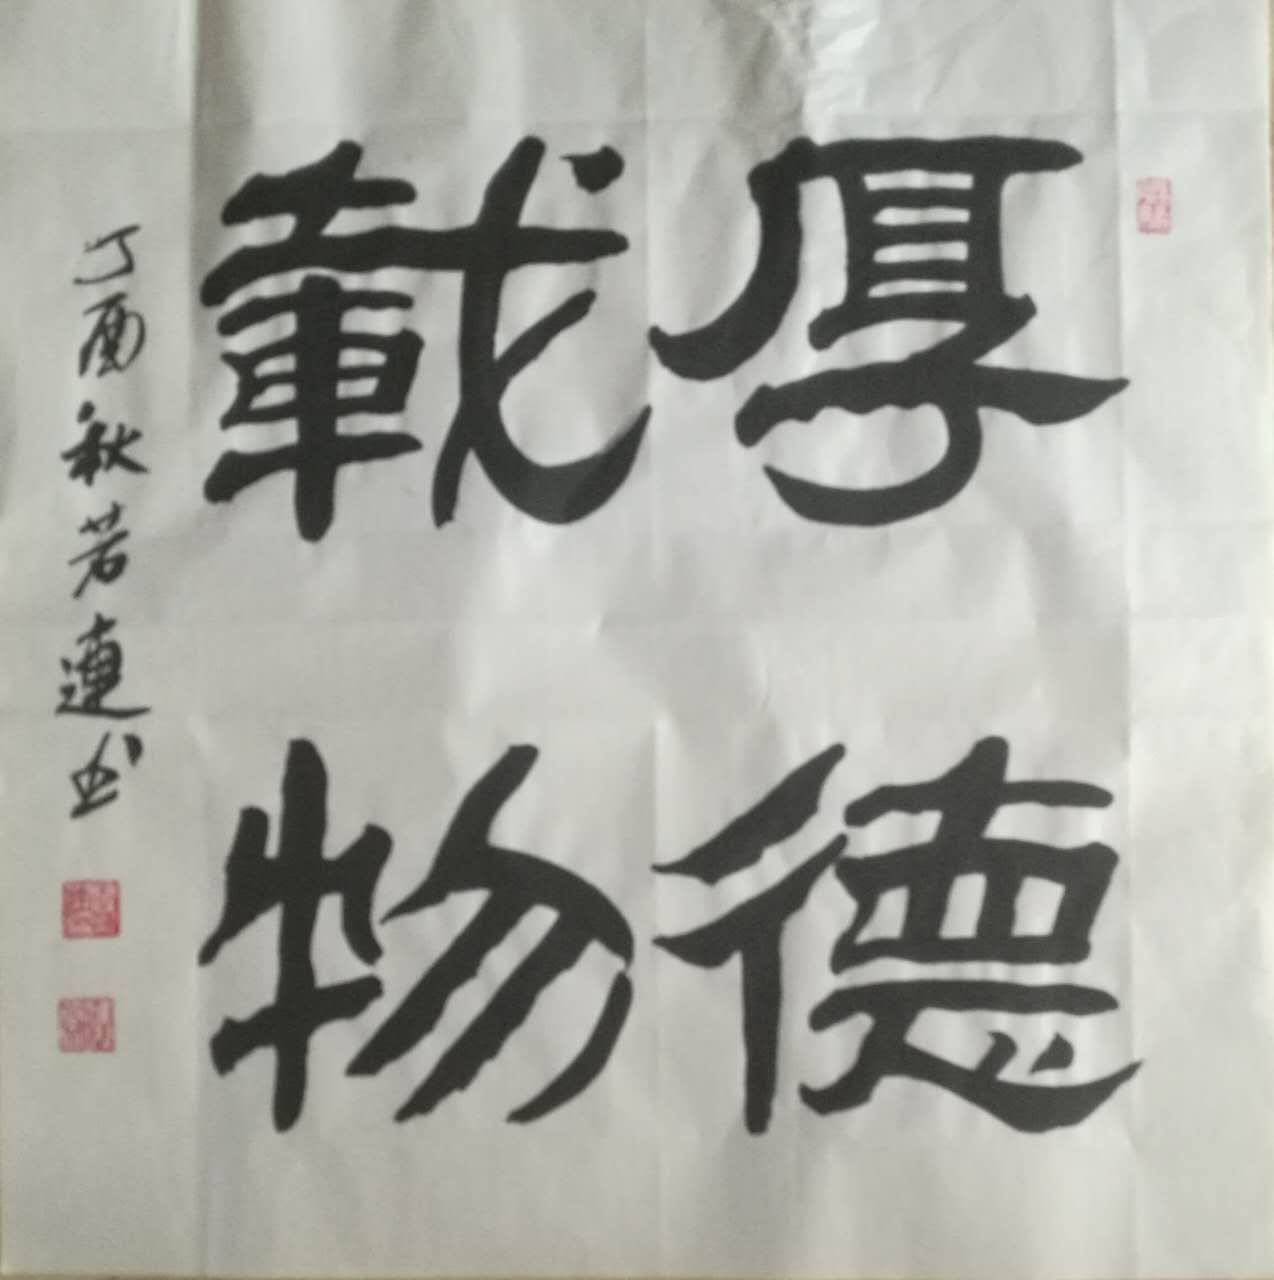 厚德
載物
丁酉秋若蓮书